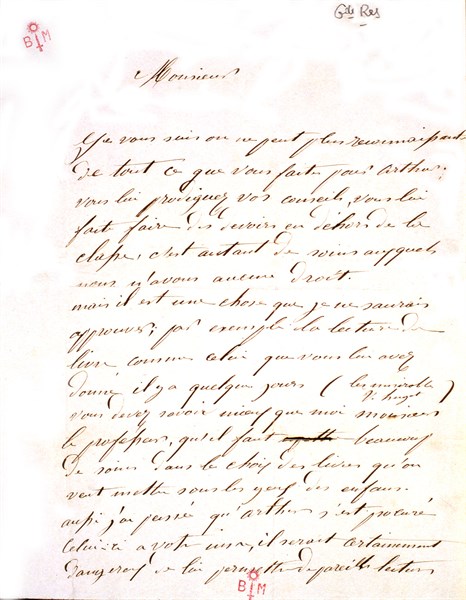 Gde Res
B M
Monsieur
Je vous suis on ne peut plus reconnaissante
de tout ce que vous faites pour arthur.
vous lui prodiguez vos conseils, vous lui
faite faire des devoirs en dehors de la
classe, c'est autant de soins auxquels
nous n'avons aucune droit.
mais il est une chose que je ne saurais
approuver, par exemple la lecture du
livre comme celui que vous lui avez
donné il y a quelques jours (les misérables
V. hugot
vous devez savoir mieux que moi monsieur
le professeur, qu'il faut beaucoup
de soins dans le choix des livres qu'on
veut mettre sous les yeux des enfans.
aussi j'ai pensé qu'arthur s'est procuré
celui-ci a votre insu, il serait certainement
dangereux de lui permettre de pareilles lectures
B M